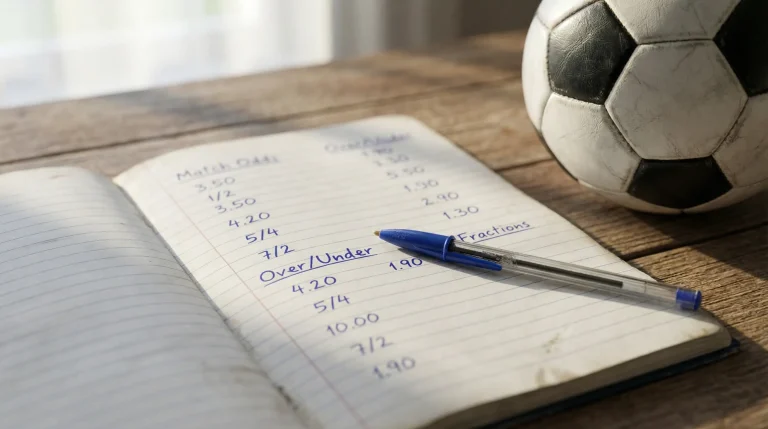 Match Odds
3.50
1/2
3.50
4.20
5/4
7/2
Over/Under
4.20
5/4
10.00
7/2
1.90
Over/Under
3.30
5.50
1.90
2.90
1.30
Fractions
1.90